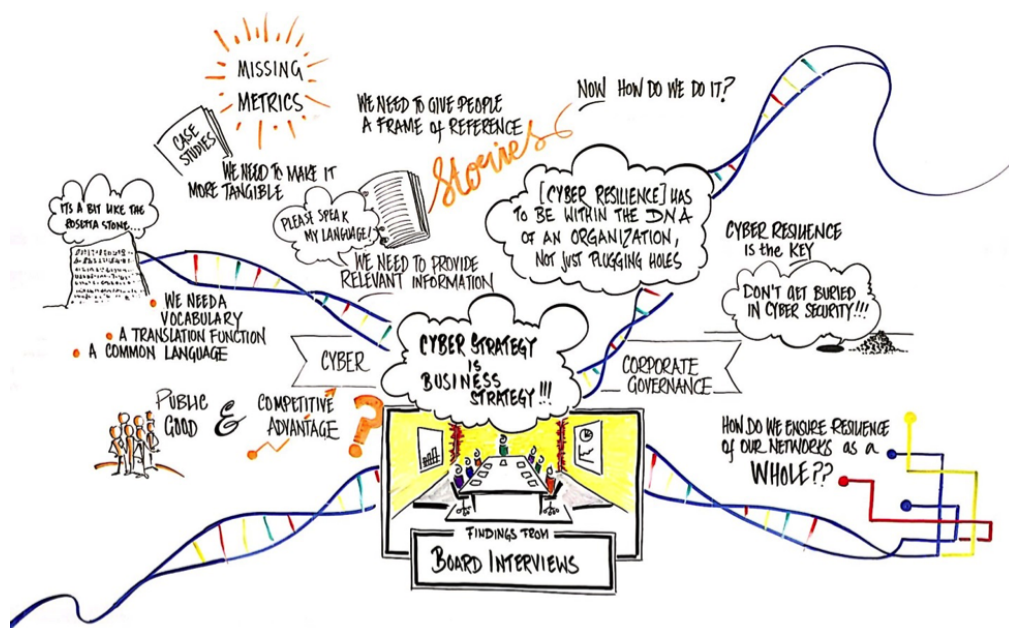 MISSING
METRICS
CASE
STUDIES
WE NEED TO MAKE IT
MORE TANGIBLE
WE NEED TO GIVE PEOPLE
A FRAME of REFERENCE
Stories
NOW HOW DO WE DO IT?
IT'S A BIT LIKE THE
ROSETTA STONE...
PLEASE SPEAK
MY LANGUAGE!
WE NEED TO PROVIDE
RELEVANT INFORMATION
[CYBER RESILIENCE] HAS
TO BE WITHIN THE DNA
OF AN ORGANIZATION,
NOT JUST PLUGGING HOLES
CYBER RESILIENCE
is the KEY
DON'T GET BURIED
IN CYBER SECURITY!!!
WE NEED A
VOCABULARY
A TRANSLATION FUNCTION
A COMMON LANGUAGE
CYBER
CYBER STRATEGY
IS
BUSINESS
STRATEGY!!!
CORPORATE
GOVERNANCE
PUBLIC
GOOD
&
COMPETITIVE
ADVANTAGE
?
HOW DO WE ENSURE RESILIENCE
OF OUR NETWORKS AS a
WHOLE??
FINDINGS FROM
BOARD INTERVIEWS